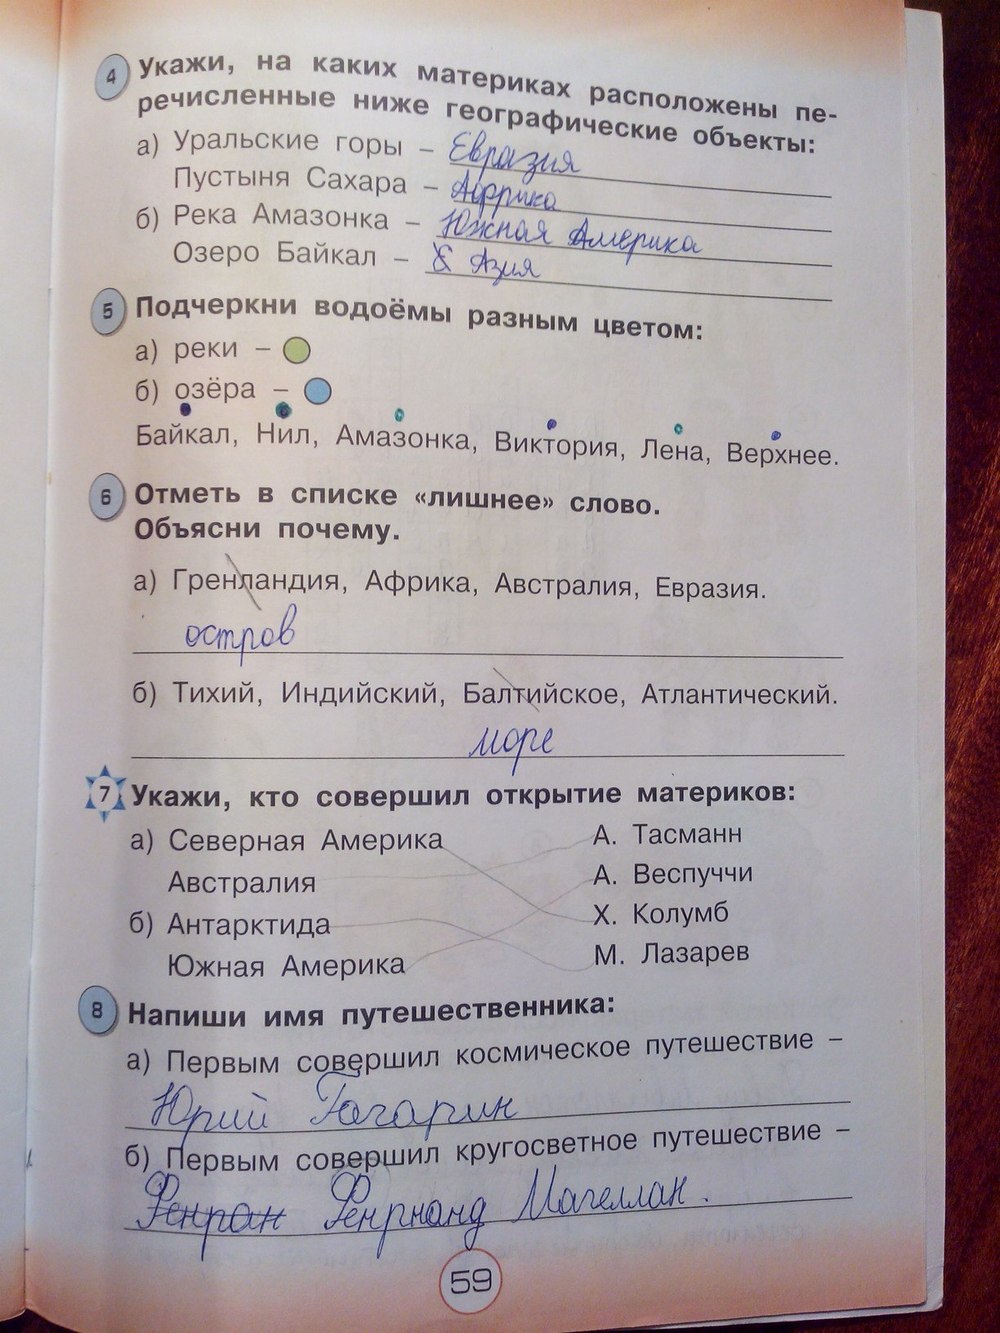 4 Укажи, на каких материках расположены пе-
речисленные ниже географические объекты:
а) Уральские горы – Евразия
Пустыня Сахара – Африка
б) Река Амазонка – Южная Америка
Озеро Байкал – Азия
5 Подчеркни водоёмы разным цветом:
а) реки –
б) озёра –
Байкал, Нил, Амазонка, Виктория, Лена, Верхнее.
6 Отметь в списке «лишнее» слово.
Объясни почему.
а) Гренландия, Африка, Австралия, Евразия.
остров
б) Тихий, Индийский, Балтийское, Атлантический.
море
7 Укажи, кто совершил открытие материков:
а) Северная Америка А. Тасманн
Австралия А. Веспуччи
б) Антарктида Х. Колумб
Южная Америка М. Лазарев
8 Напиши имя путешественника:
а) Первым совершил космическое путешествие –
Юрий Гагарин
б) Первым совершил кругосветное путешествие –
Магеллан.
59